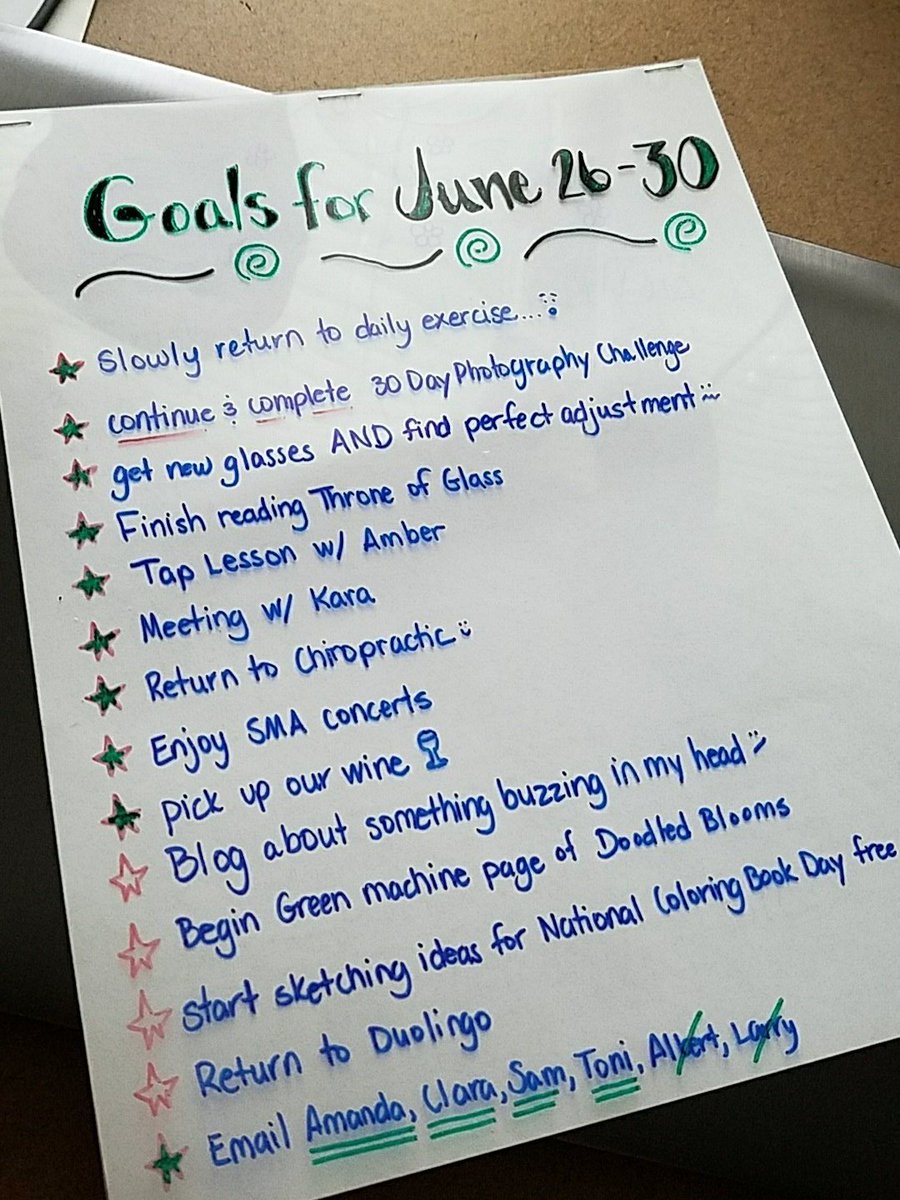 Goals for June 26-30
Slowly return to daily exercise...
continue & complete 30 Day Photography Challenge
get new glasses AND find perfect adjustment
Finish reading Throne of Glass
Tap Lesson w/ Amber
Meeting w/ Kara
Return to Chiropractic
Enjoy SMA concerts
pick up our wine
Blog about something buzzing in my head
Begin Green machine page of Doodled Blooms
start sketching ideas for National Coloring Book Day free
Return to Duolingo
Email Amanda, Clara, Sam, Toni, Albert, Larry